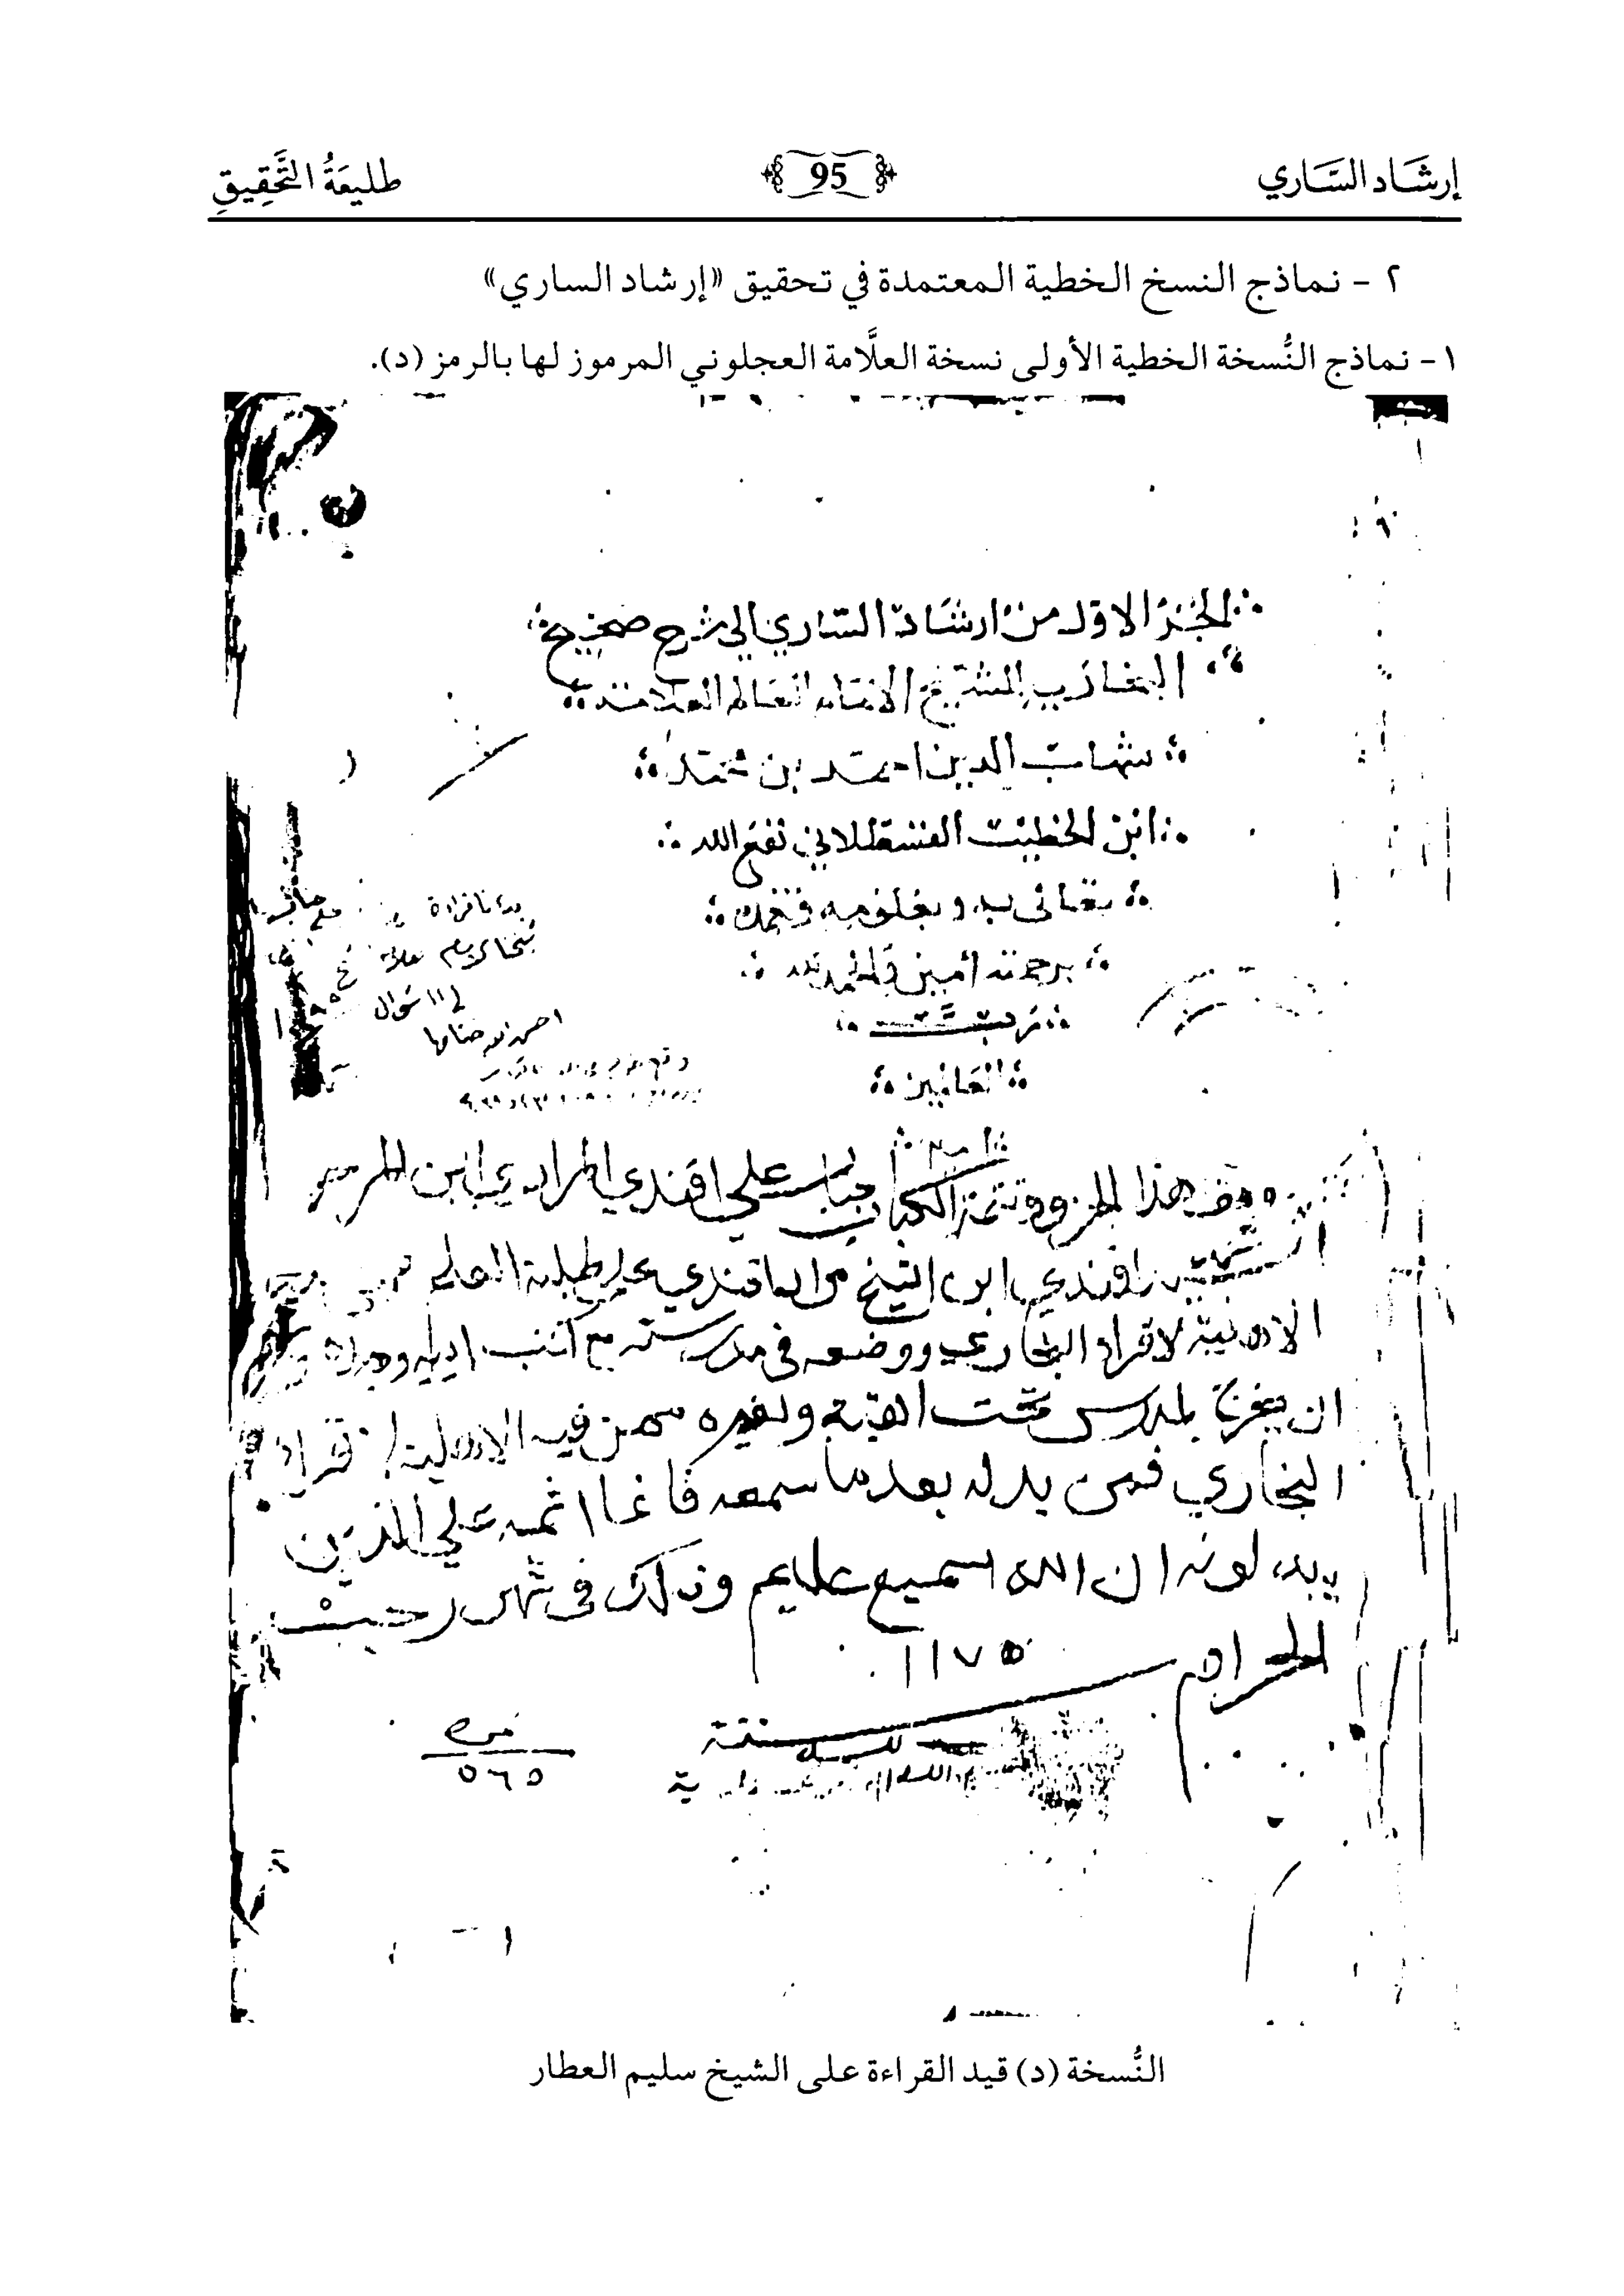 إرشَاد السَّاري
95
طَليعَةُ التَّحقِيقِ
٢ - نماذج النسخ الخطية المعتمدة في تحقيق «إرشاد الساري»
١ - نماذج النُّسخة الخطية الأولى نسخة العلَّامة العجلوني المرموز لها بالرمز (د).
الجزء الاول من ارشاد الساري الى شرح صحيح
البخاري للشيخ الامام العالم العلامة
شهاب الدين احمد بن محمد
ابن الخطيب القسطلاني نفع الله
تعالى به وبعلومه
برحمته امين والحمد لله
رب
العالمين
بدأنا قراءة
في ١١ شوال
احسن الله ختامها
وقف هذا الجزء وتتمة الكتاب جناب علي افندي المرادي ابن المرحوم
افندي ابن الشيخ مراد افندي على طلبة العلم
لاقراء البخاري ووضعه في مدرسة
ان بالمدرس تحت القبة ولغيره ممن فيه الاهلية
البخاري فمن بدله بعدما سمعه فانما اثمه على الذين
يبدلونه ان الله سميع عليم وذلك في شهر رجب
الحرام
سنة ١١٧٥
نمرة
٥٦٥
النُّسخة (د) قيد القراءة على الشيخ سليم العطار